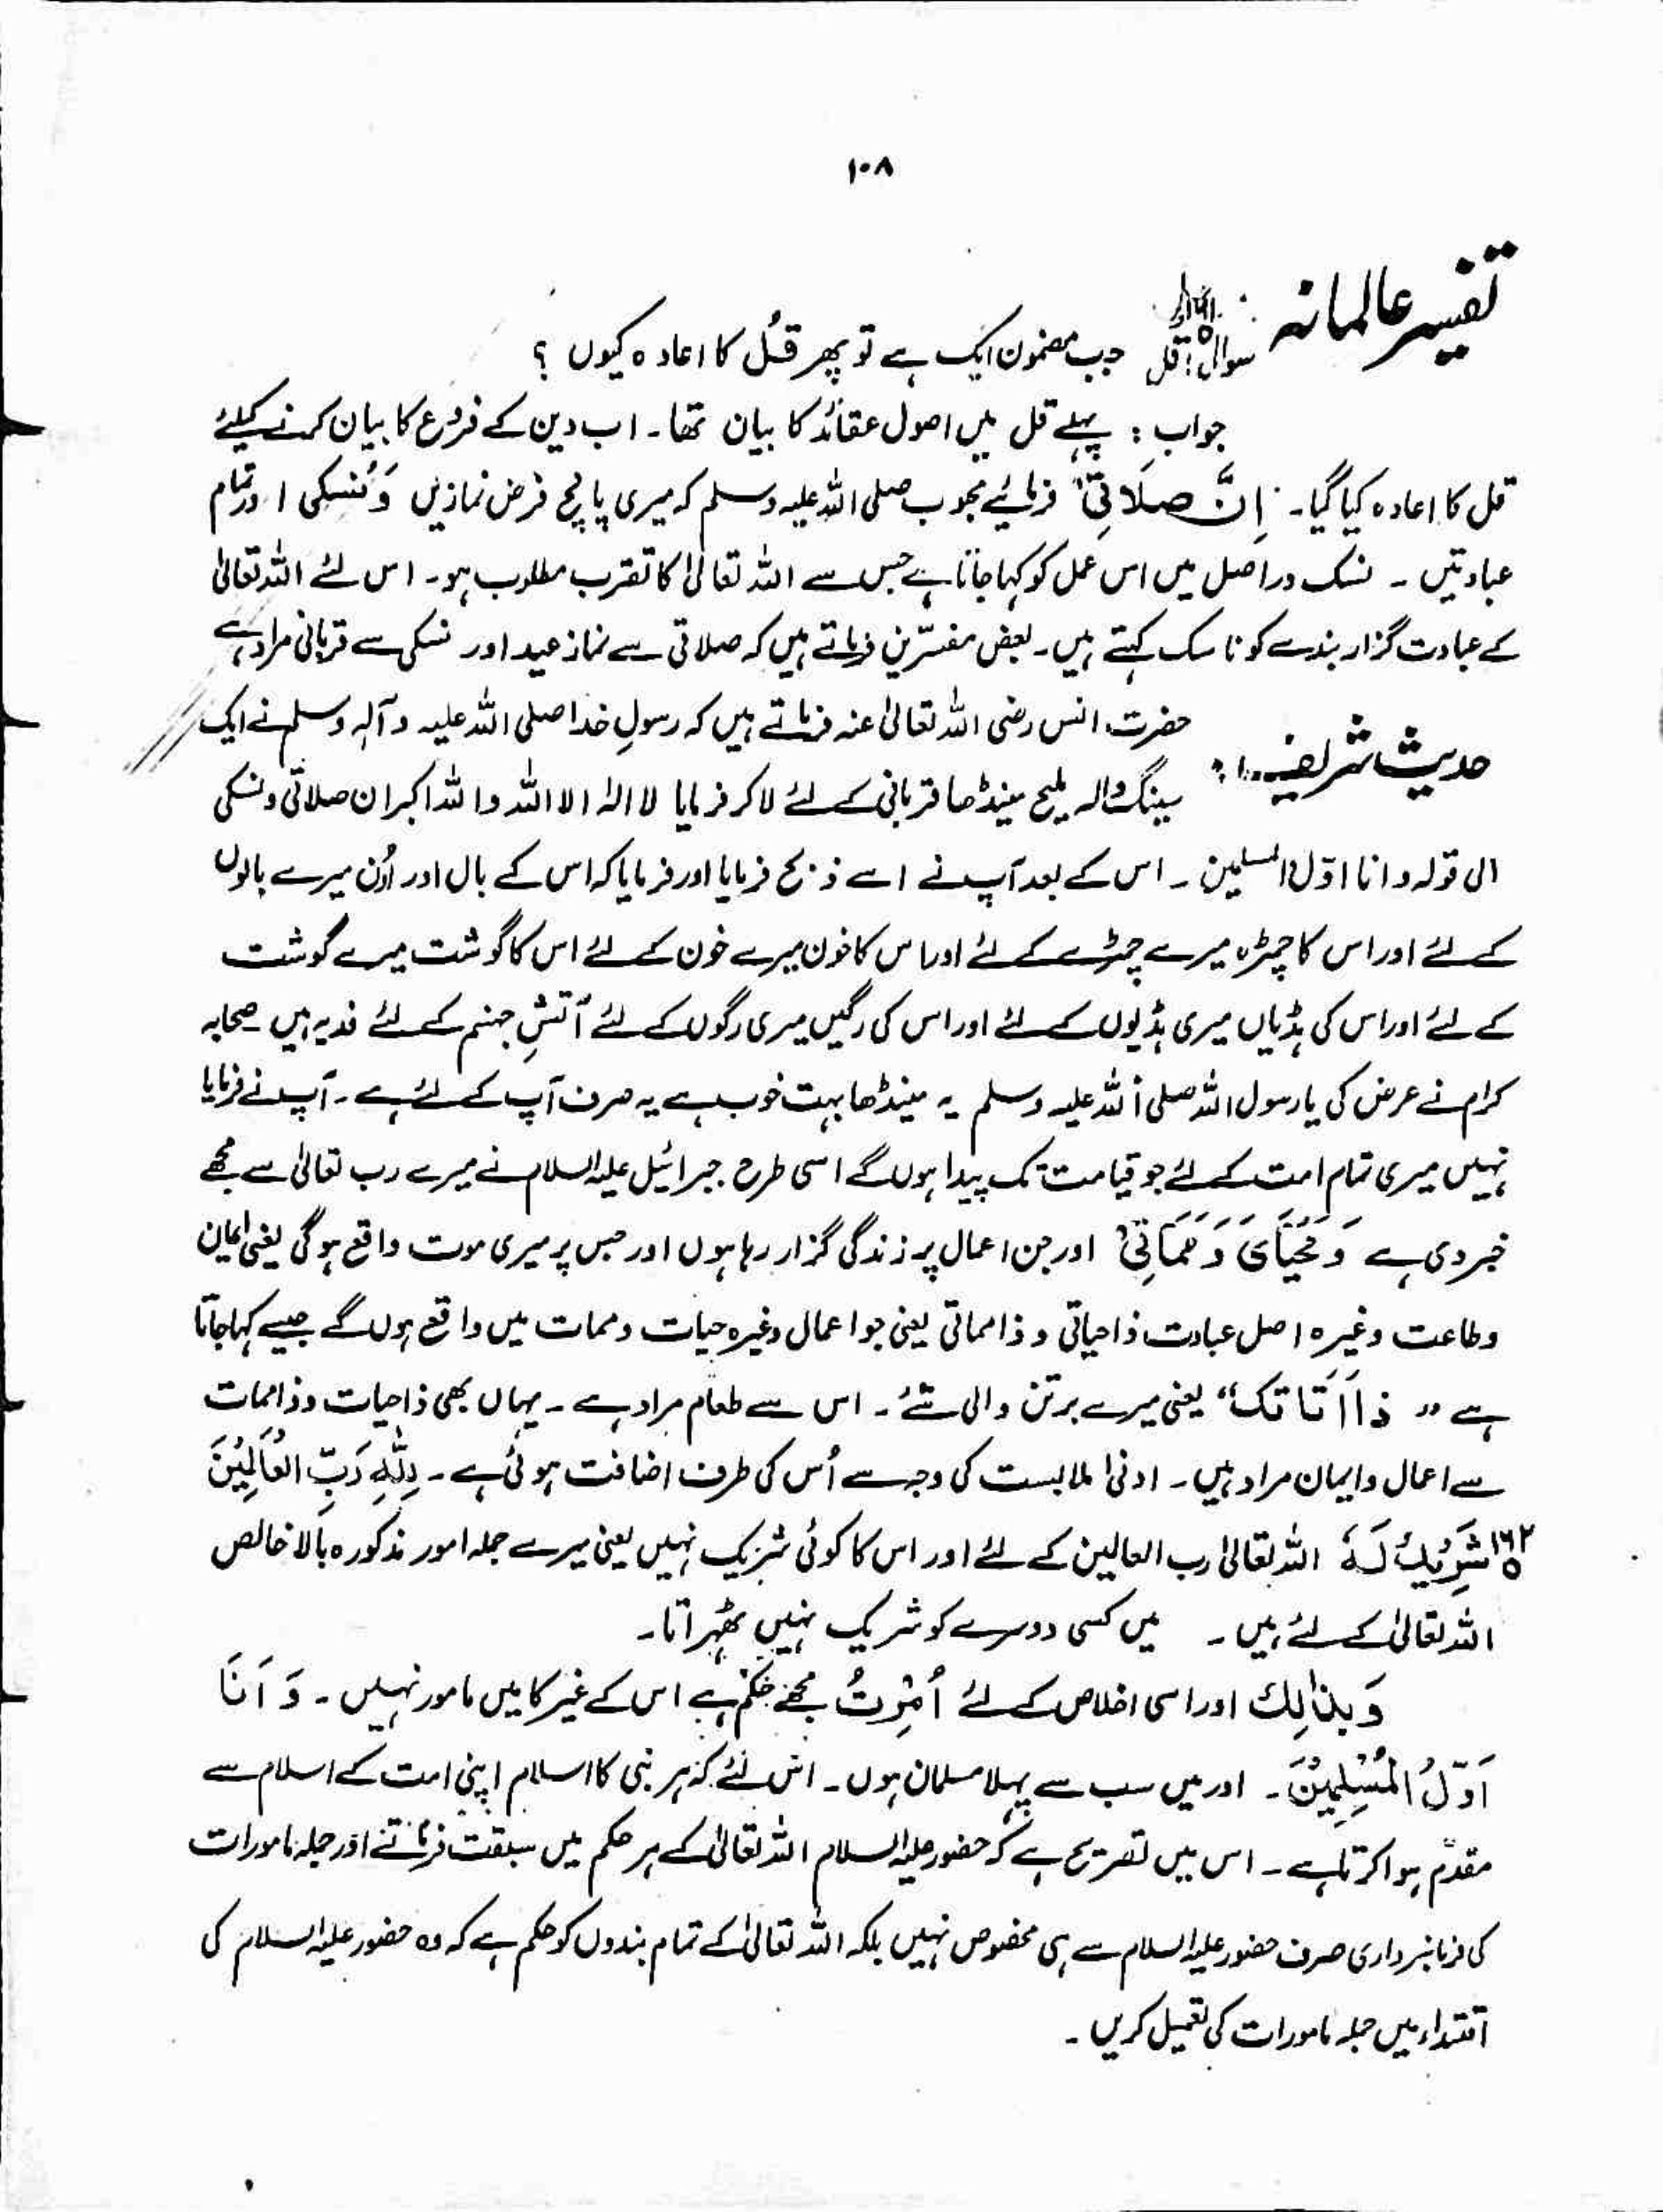 ۱۰۸
تفسیر عالمانہ
سوال: قل جب مضمون ایک ہے تو پھر قُل کا اعادہ کیوں ؟
جواب : پہلے قل میں اصول عقائد کا بیان تھا۔ اب دین کے فروع کا بیان کرنے کیلئے
قل کا اعادہ کیا گیا۔ اِنَّ صَلَاتِیْ فرمائیے محبوب صلی اللہ علیہ وسلم کہ میری پانچ فرض نمازیں وَنُسُکِی اور تمام
عبادتیں ۔ نسک دراصل میں اس عمل کو کہا جاتا ہے جس سے اللہ تعالیٰ کا تقرب مطلوب ہو۔ اس لئے اللہ تعالیٰ
کے عبادت گزار بندے کو ناسک کہتے ہیں۔ بعض مفسّرین فرماتے ہیں کہ صلاتی سے نماز عید اور نسکی سے قربانی مراد ہے
حدیث شریف :
حضرت انس رضی اللہ تعالیٰ عنہ فرماتے ہیں کہ رسولِ خدا صلی اللہ علیہ وآلہ وسلم نے ایک
سینگ والہ ملیح مینڈھا قربانی کے لئے لا کر فرمایا لا الہ الا اللہ واللہ اکبر ان صلاتی ونسکی
الی قولہ وانا اوّل المسلمین ۔ اس کے بعد آپ نے اسے ذبح فرمایا اور فرمایا کہ اس کے بال اور اُون میرے بالوں
کے لئے اور اس کا چمڑہ میرے چمڑے کے لئے اور اس کا خون میرے خون کے لئے اس کا گوشت میرے گوشت
کے لئے اور اس کی ہڈیاں میری ہڈیوں کے لئے اور اس کی رگیں میری رگوں کے لئے آتشِ جہنم کے لئے فدیہ ہیں صحابہ
کرام نے عرض کی یا رسول اللہ صلی اللہ علیہ وسلم یہ مینڈھا بہت خوب ہے یہ صرف آپ کے لئے ہے ۔ آپ نے فرمایا
نہیں میری تمام امت کے لئے جو قیامت تک پیدا ہوں گے اسی طرح جبرائیل علیہ السلام نے میرے رب تعالیٰ سے مجھے
خبر دی ہے وَمَحْیَایَ وَمَمَاتِیْ اور جن اعمال پر زندگی گزار رہا ہوں اور جس پر میری موت واقع ہو گی یعنی ایمان
وطاعت وغیرہ اصل عبادت ذاحیاتی و ذامماتی یعنی جو اعمال وغیرہ حیات وممات میں واقع ہوں گے جیسے کہا جاتا
ہے " ذا اَتَاتک" یعنی میرے برتن والی شئے ۔ اس سے طعام مراد ہے ۔ یہاں بھی ذاحیات وذالممات
سے اعمال وایمان مراد ہیں۔ ادنیٰ ملابست کی وجہ سے اُس کی طرف اضافت ہوئی ہے ۔ لِلّٰہِ رَبِّ الْعَالَمِیْنَ
۱۶۲ شَرِیْکَ لَہٗ اللہ تعالیٰ رب العالمین کے لئے اور اس کا کوئی شریک نہیں یعنی میرے جملہ امور مذکورہ بالا خالص
اللہ تعالیٰ کے لئے ہیں ۔ میں کسی دوسرے کو شریک نہیں ٹھہراتا۔
وَبِذٰلِکَ اور اسی اخلاص کے لئے اُمِرْتُ مجھے حکم ہے اس کے غیر کا میں مامور نہیں ۔ وَ اَنَا
اَوَّلُ الْمُسْلِمِیْنَ ۔ اور میں سب سے پہلا مسلمان ہوں ۔ اس لئے کہ ہر نبی کا اسلام اپنی امت کے اسلام سے
مقدّم ہوا کرتا ہے ۔ اس میں تصریح ہے کہ حضور علیہ السلام اللہ تعالیٰ کے ہر حکم میں سبقت فرماتے اور جملہ مامورات
کی فرمانبرداری صرف حضور علیہ السلام سے ہی مخصوص نہیں بلکہ اللہ تعالیٰ کے تمام بندوں کو حکم ہے کہ وہ حضور علیہ السلام کی
اقتداء میں جملہ مامورات کی تعمیل کریں ۔